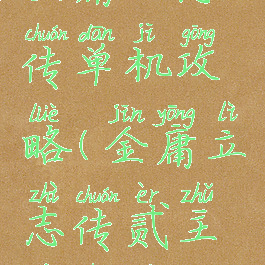 chuán dān jī gōng
传单机攻
lüè jīn yōng lì
略(金庸立
zhì chuán èr zhǔ
志传贰主